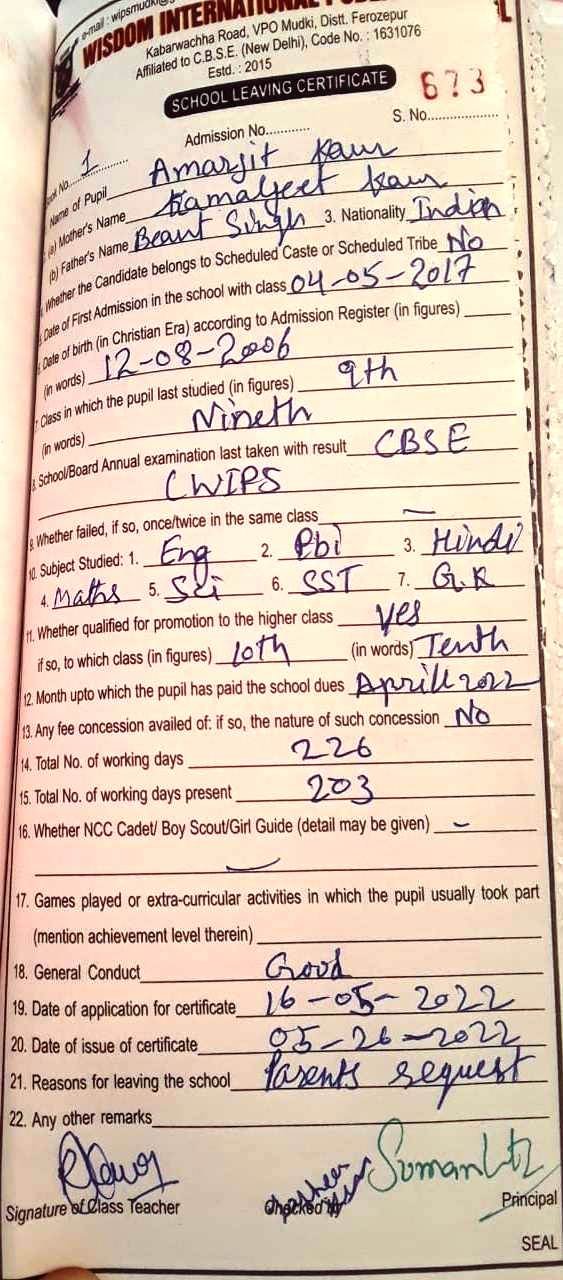 e-mail : wipsmudki@
WISDOM INTERNATIONAL
Kabarwachha Road, VPO Mudki, Distt. Ferozepur
Affiliated to C.B.S.E. (New Delhi), Code No. : 1631076
Estd. : 2015
SCHOOL LEAVING CERTIFICATE
673
Admission No............ S. No..................
No. 1
Name of Pupil Amarjit Kaur
(a) Mother's Name Kamaljeet Kaur
(b) Father's Name Beant Singh 3. Nationality Indian
Whether the Candidate belongs to Scheduled Caste or Scheduled Tribe No
Date of First Admission in the school with class 04-05-2017
Date of birth (in Christian Era) according to Admission Register (in figures)
(in words) 12-08-2006
Class in which the pupil last studied (in figures) 9th
(in words) Nineth
School/Board Annual examination last taken with result CBSE
CWIPS
9. Whether failed, if so, once/twice in the same class —
10. Subject Studied: 1. Eng 2. Pbi 3. Hindi
4. Maths 5. Sci 6. SST 7. G.K
11. Whether qualified for promotion to the higher class yes
if so, to which class (in figures) 10th (in words) Tenth
12. Month upto which the pupil has paid the school dues Aprill 2022
13. Any fee concession availed of: if so, the nature of such concession No
14. Total No. of working days 226
15. Total No. of working days present 203
16. Whether NCC Cadet/ Boy Scout/Girl Guide (detail may be given) —
17. Games played or extra-curricular activities in which the pupil usually took part
(mention achievement level therein)
18. General Conduct Good
19. Date of application for certificate 16-05-2022
20. Date of issue of certificate 05-26-2022
21. Reasons for leaving the school Parents request
22. Any other remarks
Signature of Class Teacher Checked by Principal
SEAL